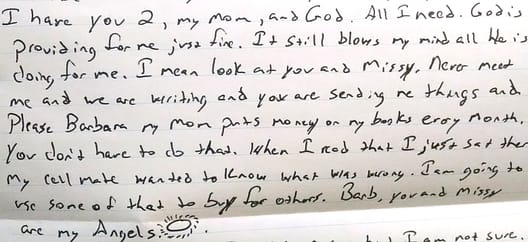 I have you 2, my mom, and God. All I need. God is
Providing for me just fine. It still blows my mind all He is
doing for me. I mean look at you and Missy. Never meet
me and we are writing and you are sending me things and
Please Barbara my mom puts money on my books every month.
You don't have to do that. When I read that I just sat ther
My cell mate wanted to know what was wrong. I am going to
use some of that to buy for others. Barb, you and Missy
are my Angels.
I am not sure.